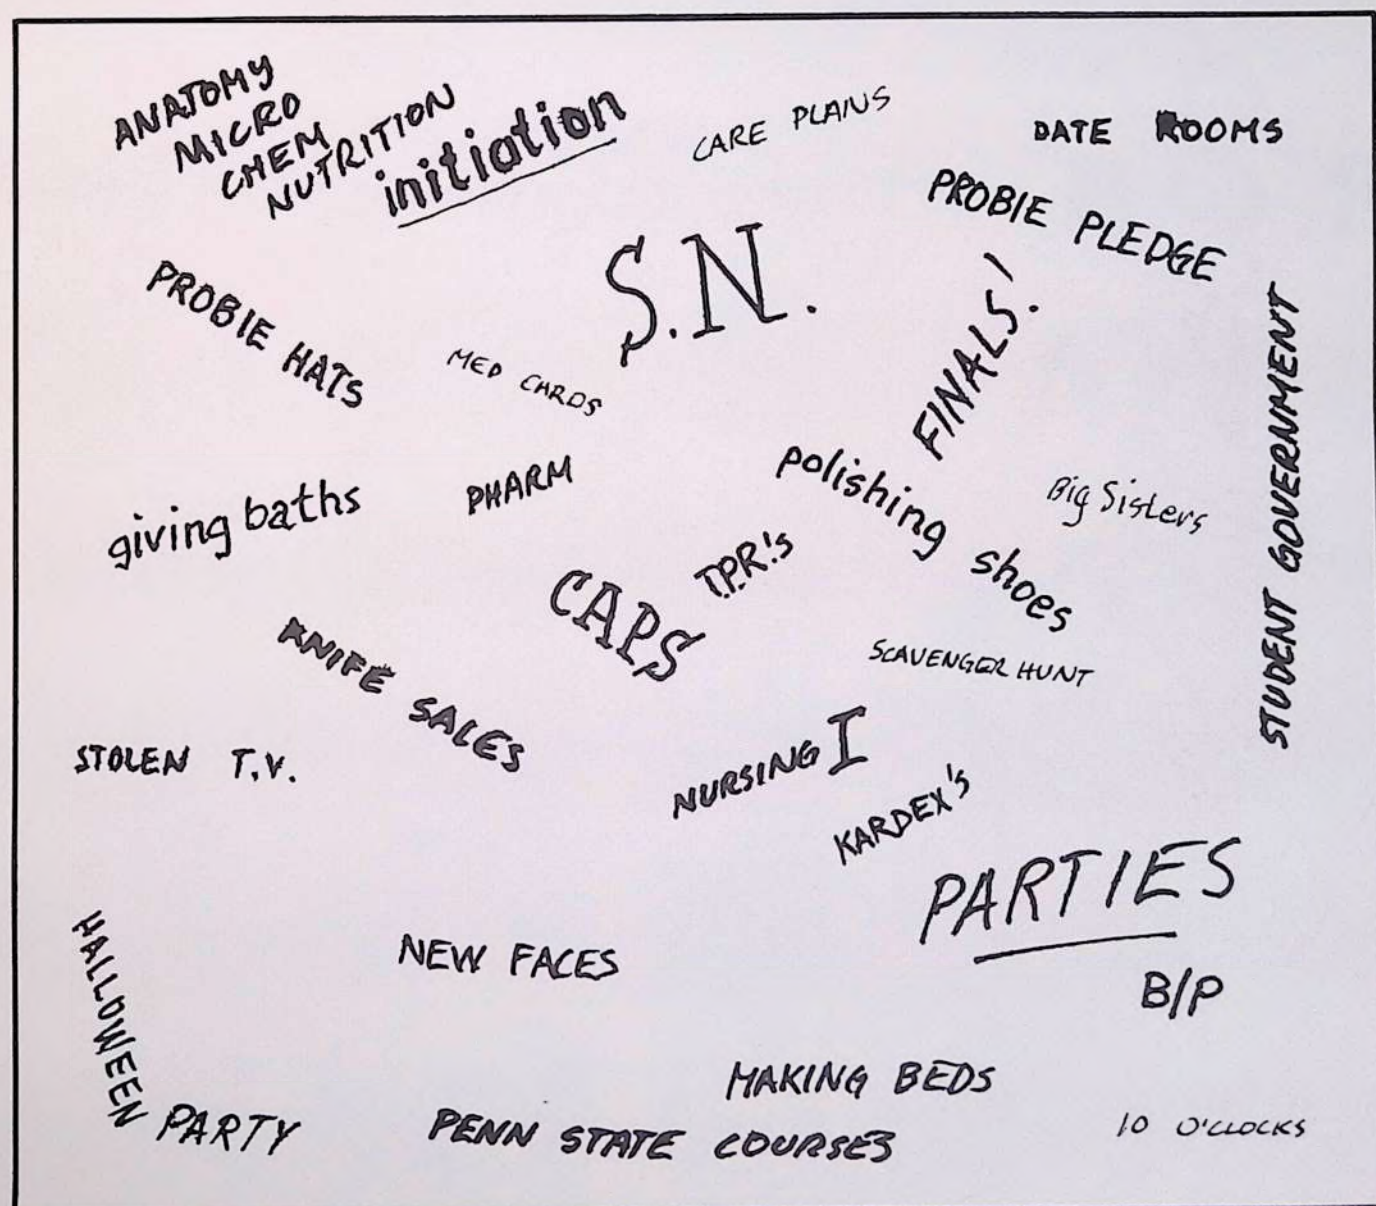 ANATOMY
MICRO
CHEM
NUTRITION
initiation
CARE PLANS
DATE ROOMS
PROBIE PLEDGE
S.N.
PROBIE HATS
MED CARDS
FINALS!
STUDENT GOVERNMENT
giving baths
PHARM
polishing shoes
Big Sisters
T.P.R.'s
CAPS
KNIFE SALES
SCAVENGER HUNT
STOLEN T.V.
NURSING I
KARDEX's
PARTIES
B/P
NEW FACES
HALLOWEEN
PARTY
MAKING BEDS
PENN STATE COURSES
10 O'CLOCKS